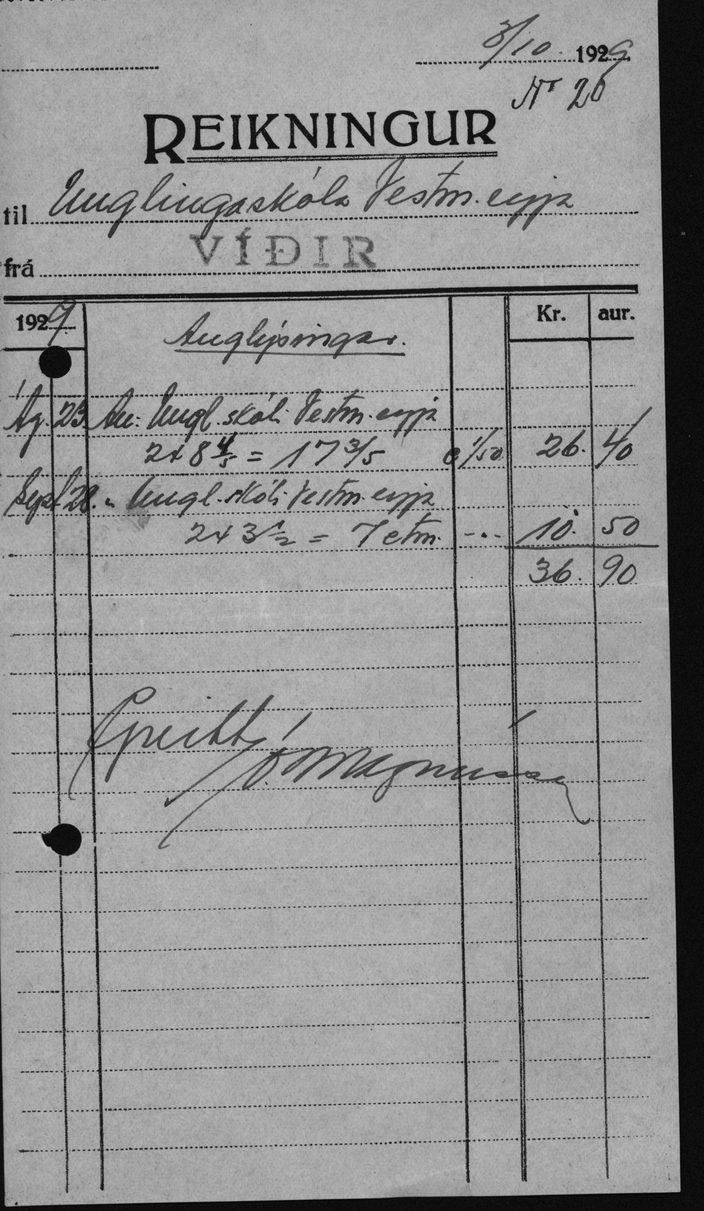 3/10 1929.
Nr 20
REIKNINGUR
til Unglingaskóla Vestm.eyja
frá VÍÐIR
1929. Kr. aur.
Auglýsingar.
Ág. 23. Au: Ungl.skóli Vestm.eyja
2x8 4/5 = 17 3/5 á 1/50 26. 40
Sept 28. " Ungl.skóli Vestm.eyja
2x3 1/2 = 7 ctm. -..- 10. 50
36. 90
Greitt
Magnússon